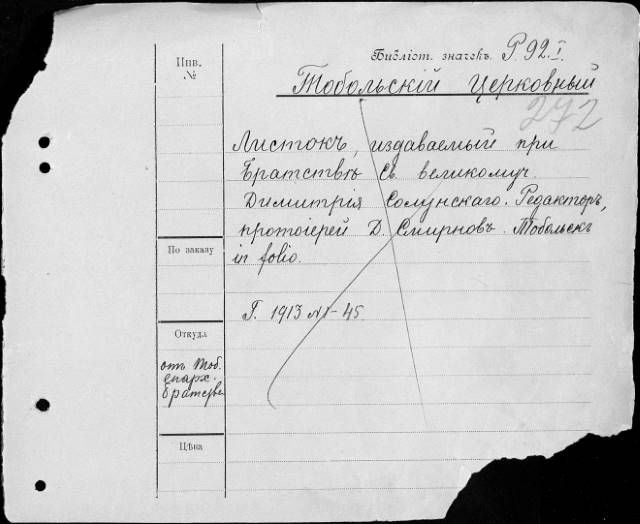 Инв.
№
Библіот. значекъ. Р. 92. I.
Тобольскій Церковный
272
Листокъ, издаваемый при
Братствѣ Св. великомуч.
Димитрія Солунскаго. Редакторъ,
протоіерей Д. Смирновъ. Тобольскъ
in folio.
По заказу
Г. 1913 № 1-45.
Откуда
отъ Тоб.
епарх.
братства
Цѣна